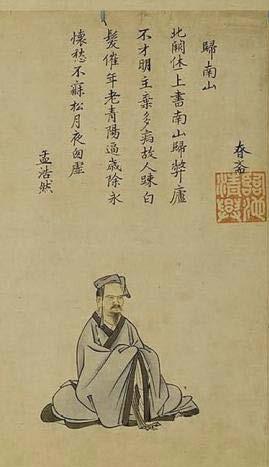 春斎
歸南山
北闕休上書南山歸弊廬
不才明主棄多病故人踈白
髮催年老青陽逼歳除永
懷愁不寐松月夜囱虚
孟浩然